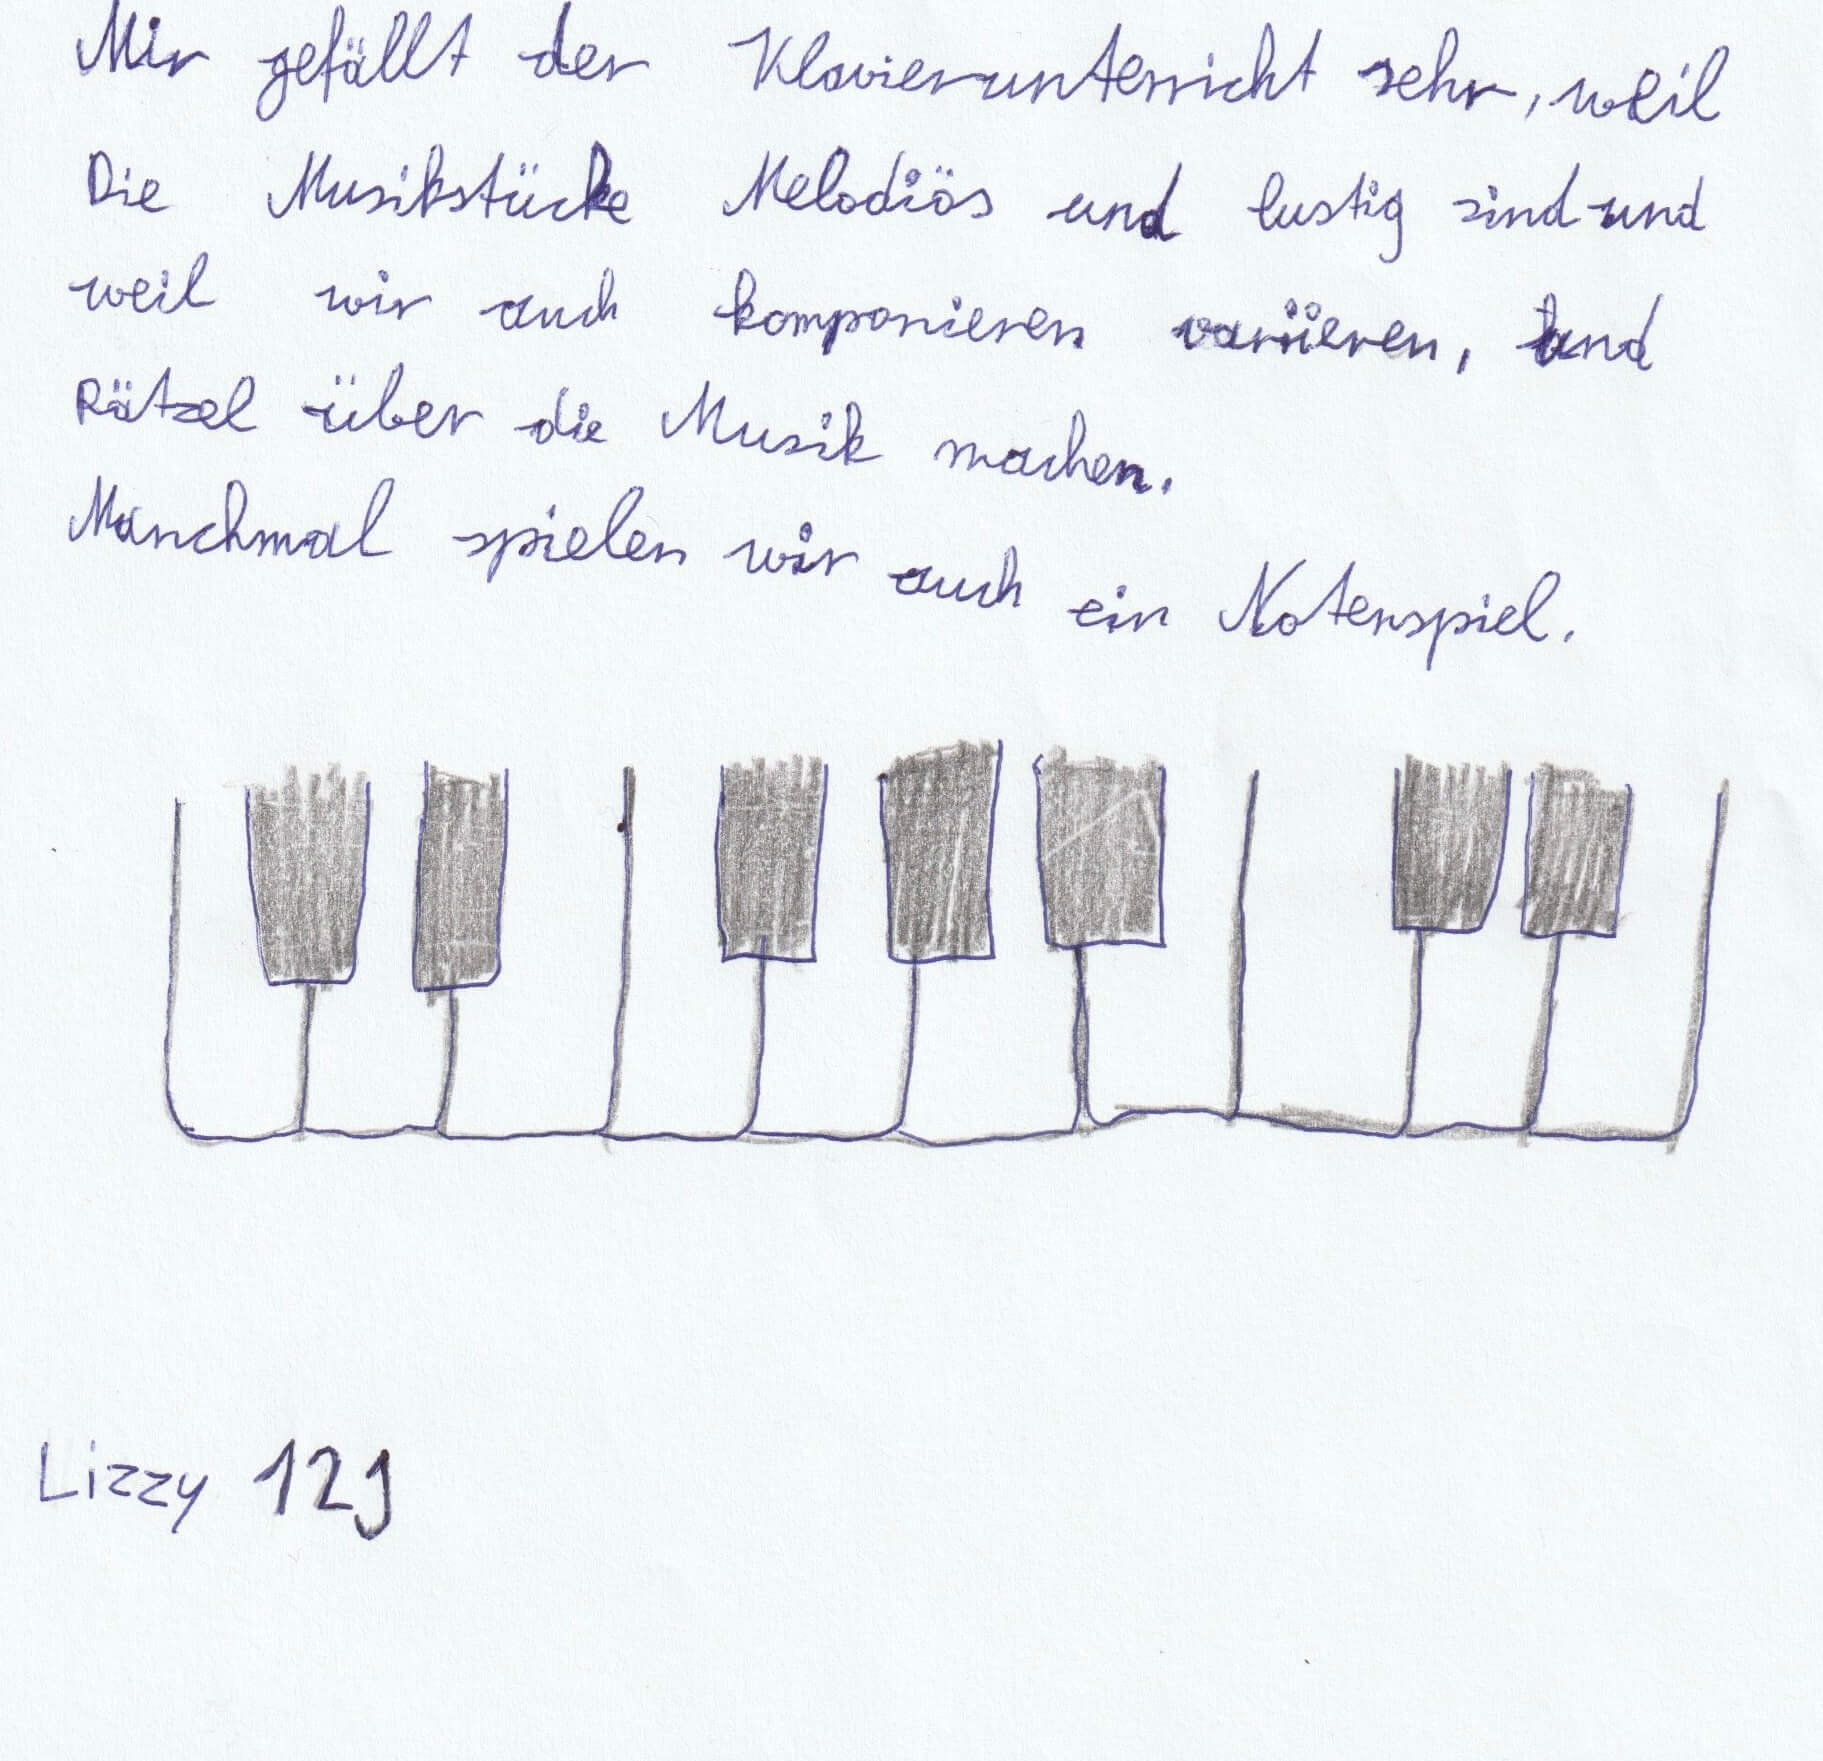 Mir gefällt der Klavierunterricht sehr, weil
Die Musikstücke Melodiös und lustig sind und
weil wir auch komponieren variieren, und
Rätsel über die Musik machen.
Manchmal spielen wir auch ein Notenspiel.
Lizzy 12J